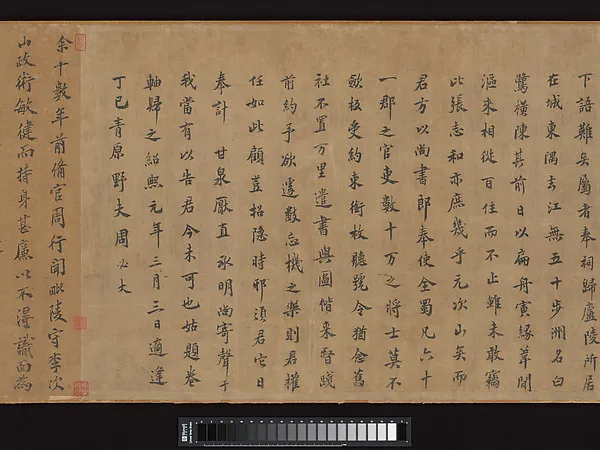 下語難矣屬者奉祠歸廬陵所居
在城東隅去江無五十步洲名白
鷺橫陳其前日以扁舟寅緣葦間
漚來相從百住而不止雖未敢竊
比張志和亦庶幾乎元次山矣而
君方以尚書郎奉使全蜀凡六十
一郡之官吏數十万之將士莫不
斂板受約束銜枚聽號令猶念舊
社不置万里遣書與圖偕來督踐
前約予欲遂數忘機之樂則君權
任如此顧豈招隱時邪須君它日
奉計 甘泉厭直承明尚寄聲于
我當有以告君今未可也姑題卷
軸歸之紹熙元年三月三日適逢
丁巳青原野夫周必大
余十數年前備官周行聞毗陵守李次
山政術敏健而持身甚廉以不得識面為